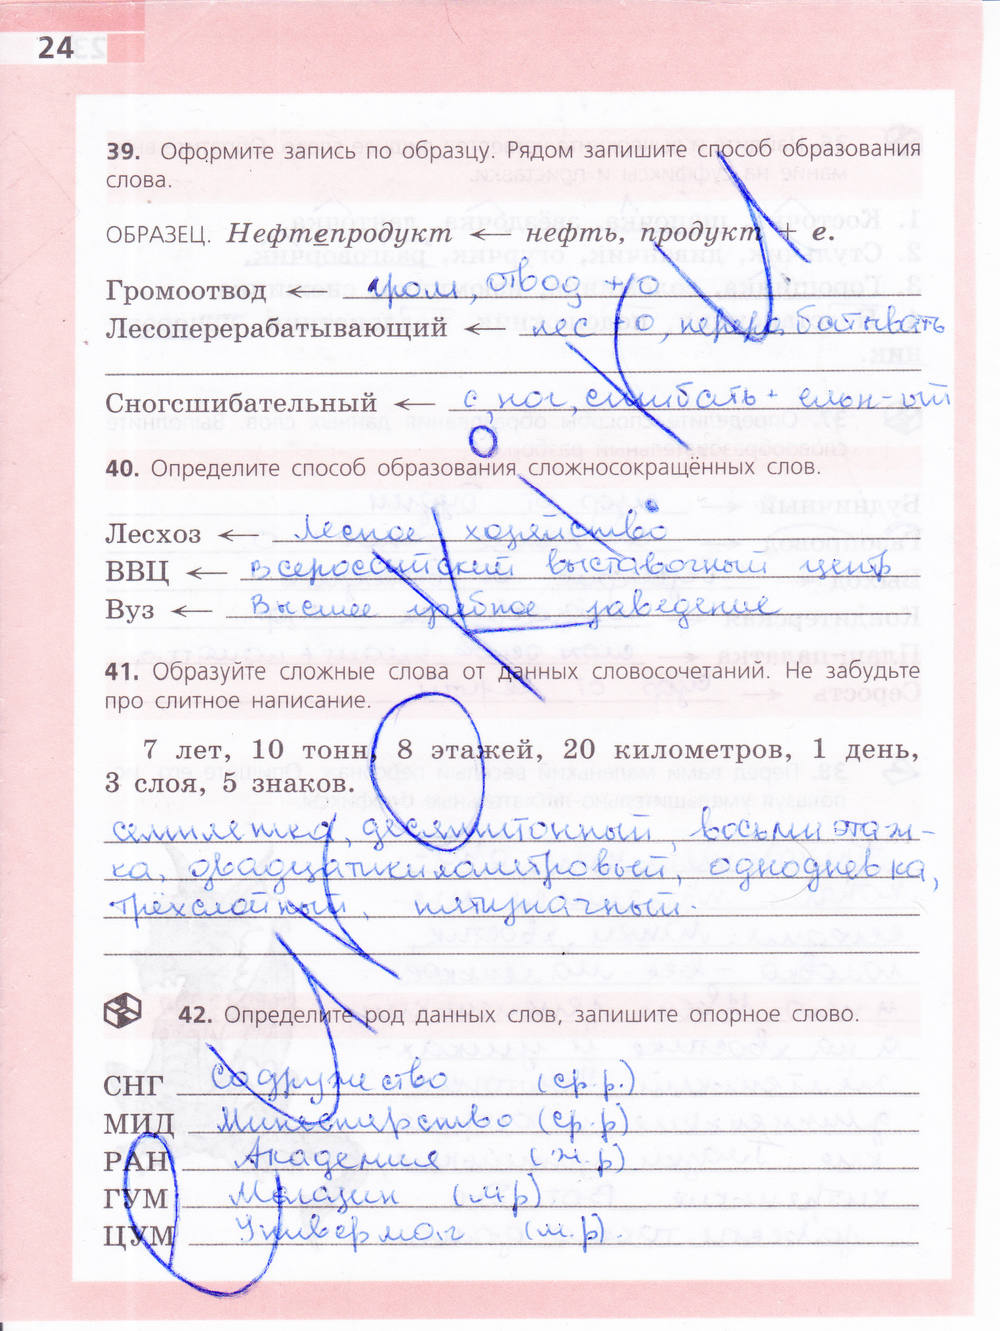 24
39. Оформите запись по образцу. Рядом запишите способ образования
слова.
ОБРАЗЕЦ. Нефтепродукт ← нефть, продукт + е.
Громоотвод гром, отвод + о
Лесоперерабатывающий ← лес + о, перерабатывать
Сногсшибательный ← с, ног, сшибать +
40. Определите способ образования сложносокращённых слов.
Лесхоз ← Лесное хозяйство
ВВЦ ← Всероссийский выставочный центр
Вуз ← Высшее учебное заведение
41. Образуйте сложные слова от данных словосочетаний. Не забудьте
про слитное написание.
7 лет, 10 тонн, 8 этажей, 20 километров, 1 день,
3 слоя, 5 знаков.
семилетка, десятитонный, восьмиэтаж-
ка, двадцатикилометровый, однодневка,
трёхслойный, пятизначный.
42. Определите род данных слов, запишите опорное слово.
СНГ Содружество (ср.р.)
МИД Министерство (ср.р)
РАН Академия (ж.р)
ГУМ Магазин (м.р)
ЦУМ Универмаг (м.р)